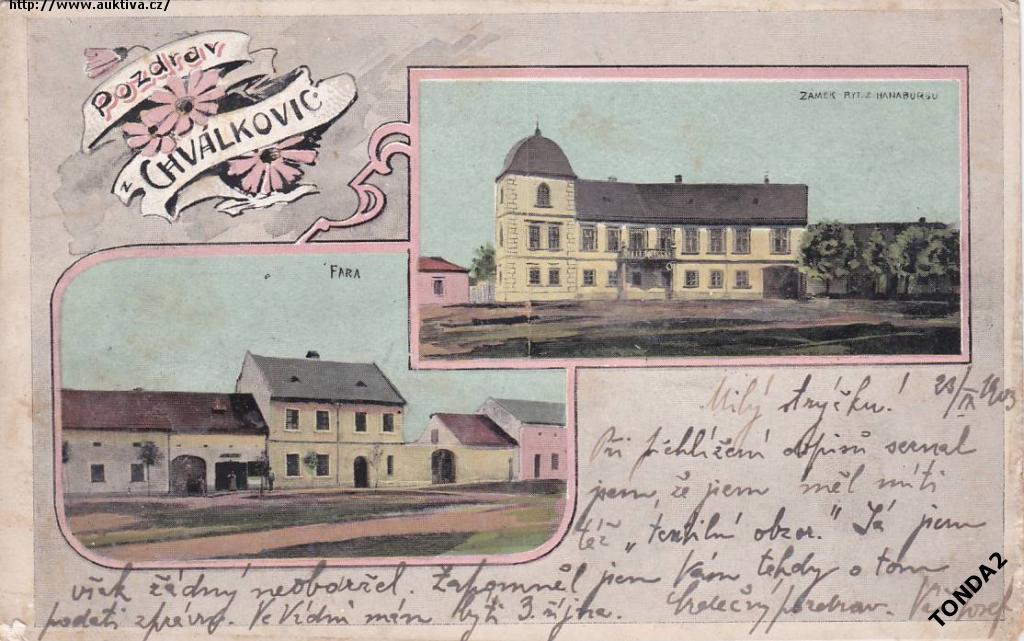 http://www.auktiva.cz/
Pozdrav
z CHVÁLKOVIC
ZÁMEK RYT. Z HANABURGU
FARA
23/IX 1903
Milý strýčku!
Při přehlížení dopisů seznal
jsem, že jsem měl míti
též „textilní obzor." Já jsem
však žádný neobdržel. Zapomněl jsem Vám tehdy o tom
podati zprávu. Ve Vídni mám býti 3. října. Srdečný pozdrav. Váš Josef
TONDA2